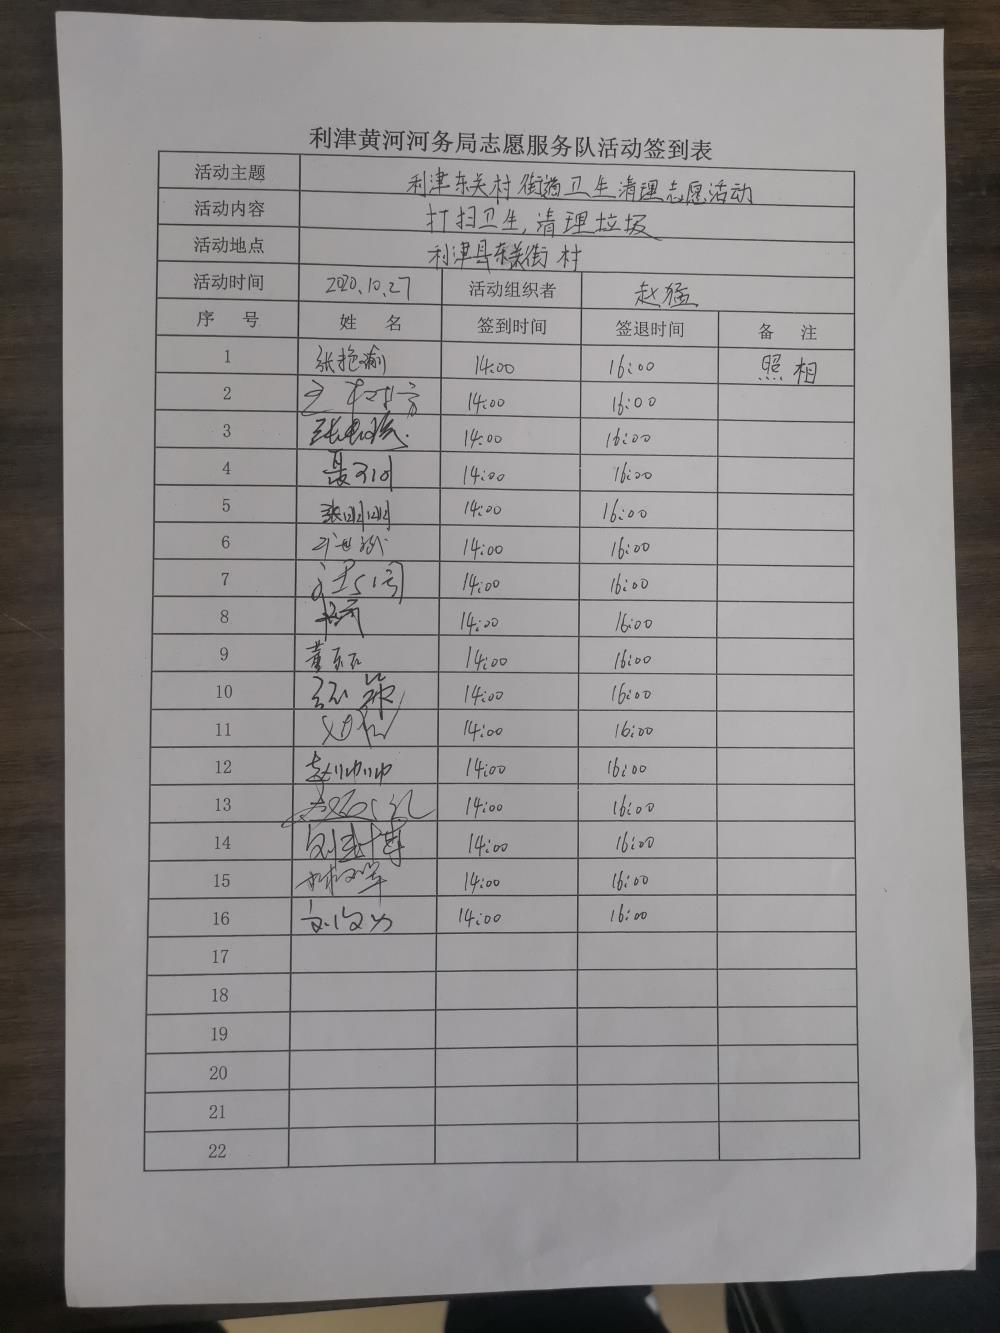 利津黄河河务局志愿服务队活动签到表
活动主题 利津东关村街道卫生清理志愿活动
活动内容 打扫卫生,清理垃圾
活动地点 利津县东关街村
活动时间 2020.10.27 活动组织者 赵猛
序 号 姓 名 签到时间 签退时间 备 注
1 张艳 14:00 16:00 照相
2 14:00 16:00
3 14:00 16:00
4 14:00 16:00
5 张明明 14:00 16:00
6 14:00 16:00
7 14:00 16:00
8 14:00 16:00
9 董 14:00 16:00
10 14:00 16:00
11 14:00 16:00
12 赵帅帅 14:00 16:00
13 14:00 16:00
14 14:00 16:00
15 14:00 16:00
16 14:00 16:00
17
18
19
20
21
22